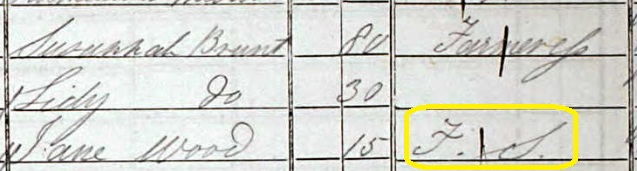 Susannah Brunt 80 Farmeress
Lidy do 30
Jane Wood 15 F. S.